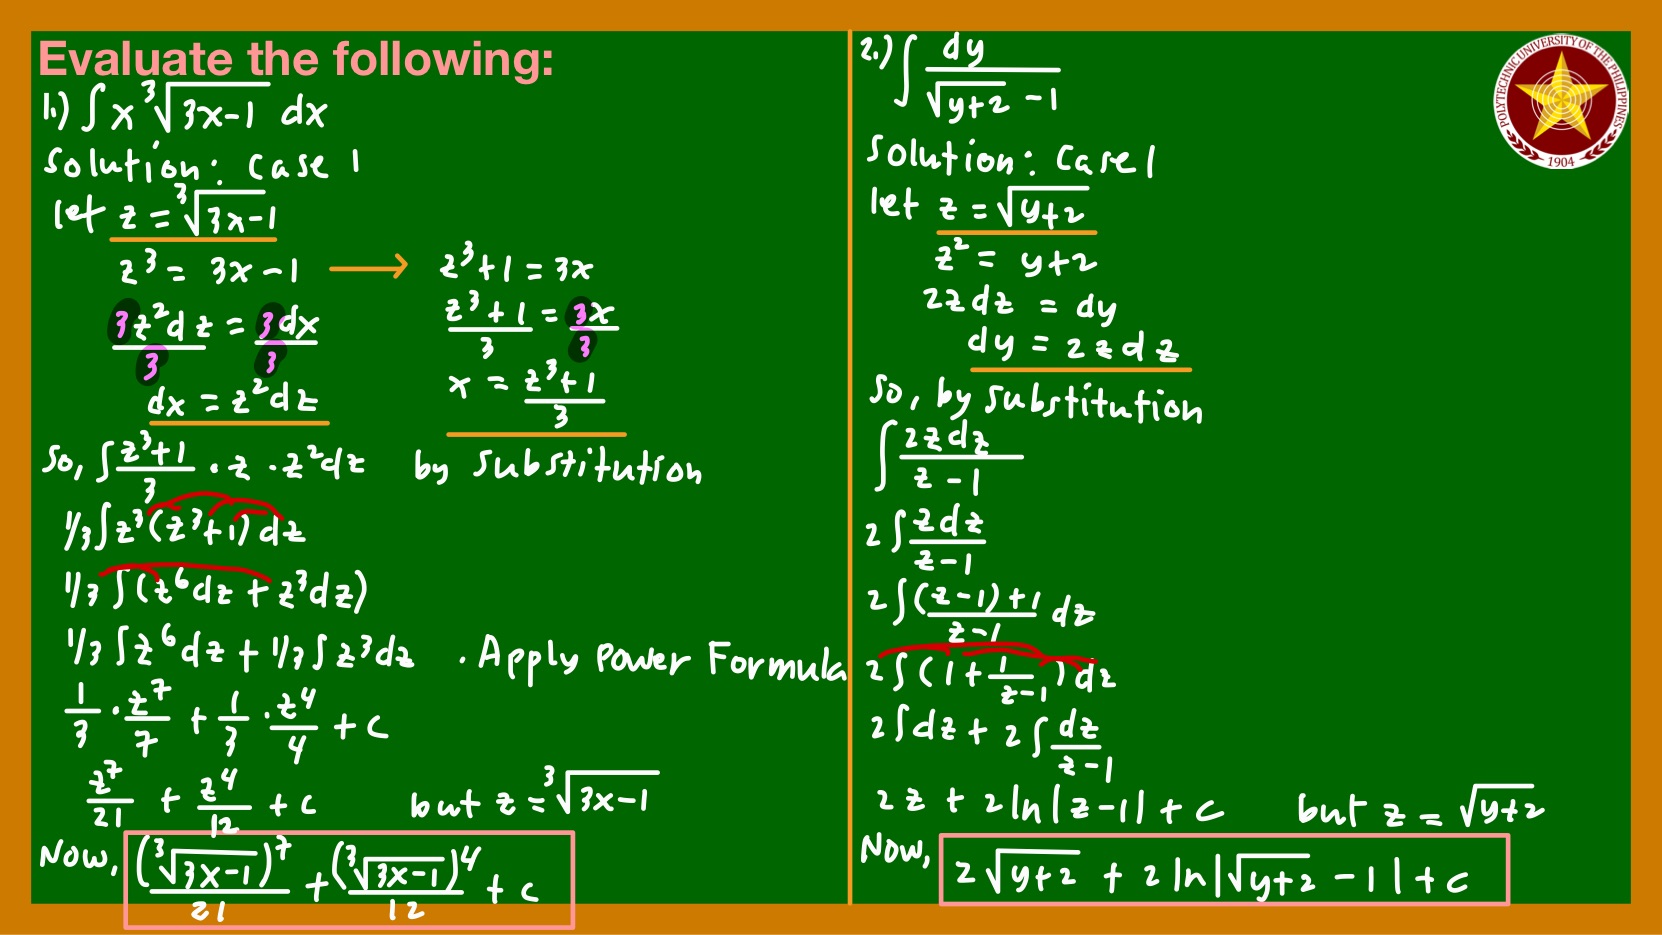 Evaluate the following:
1.) ∫ x ∛(3x-1) dx
Solution: Case 1
let z = ∛(3x-1)
z³ = 3x - 1 → z³ + 1 = 3x
3z²dz/3 = 3dx/3
(z³+1)/3 = 3x/3
dx = z²dz
x = (z³+1)/3
So, ∫ (z³+1)/3 · z · z²dz by substitution
1/3 ∫ z³(z³+1) dz
1/3 ∫ (z⁶dz + z³dz)
1/3 ∫ z⁶dz + 1/3 ∫ z³dz . Apply Power Formula
1/3 · z⁷/7 + 1/3 · z⁴/4 + c
z⁷/21 + z⁴/12 + c but z = ∛(3x-1)
Now, (∛(3x-1))⁷/21 + (∛(3x-1))⁴/12 + c
2.) ∫ dy/(√(y+2) - 1)
Solution: Case 1
let z = √(y+2)
z² = y+2
2zdz = dy
dy = 2zdz
So, by substitution
∫ 2zdz/(z-1)
2 ∫ zdz/(z-1)
2 ∫ ((z-1)+1)/(z-1) dz
2 ∫ (1 + 1/(z-1)) dz
2 ∫ dz + 2 ∫ dz/(z-1)
2z + 2 ln|z-1| + c but z = √(y+2)
Now, 2√(y+2) + 2 ln|√(y+2) - 1| + c
POLYTECHNIC UNIVERSITY OF THE PHILIPPINES
1904